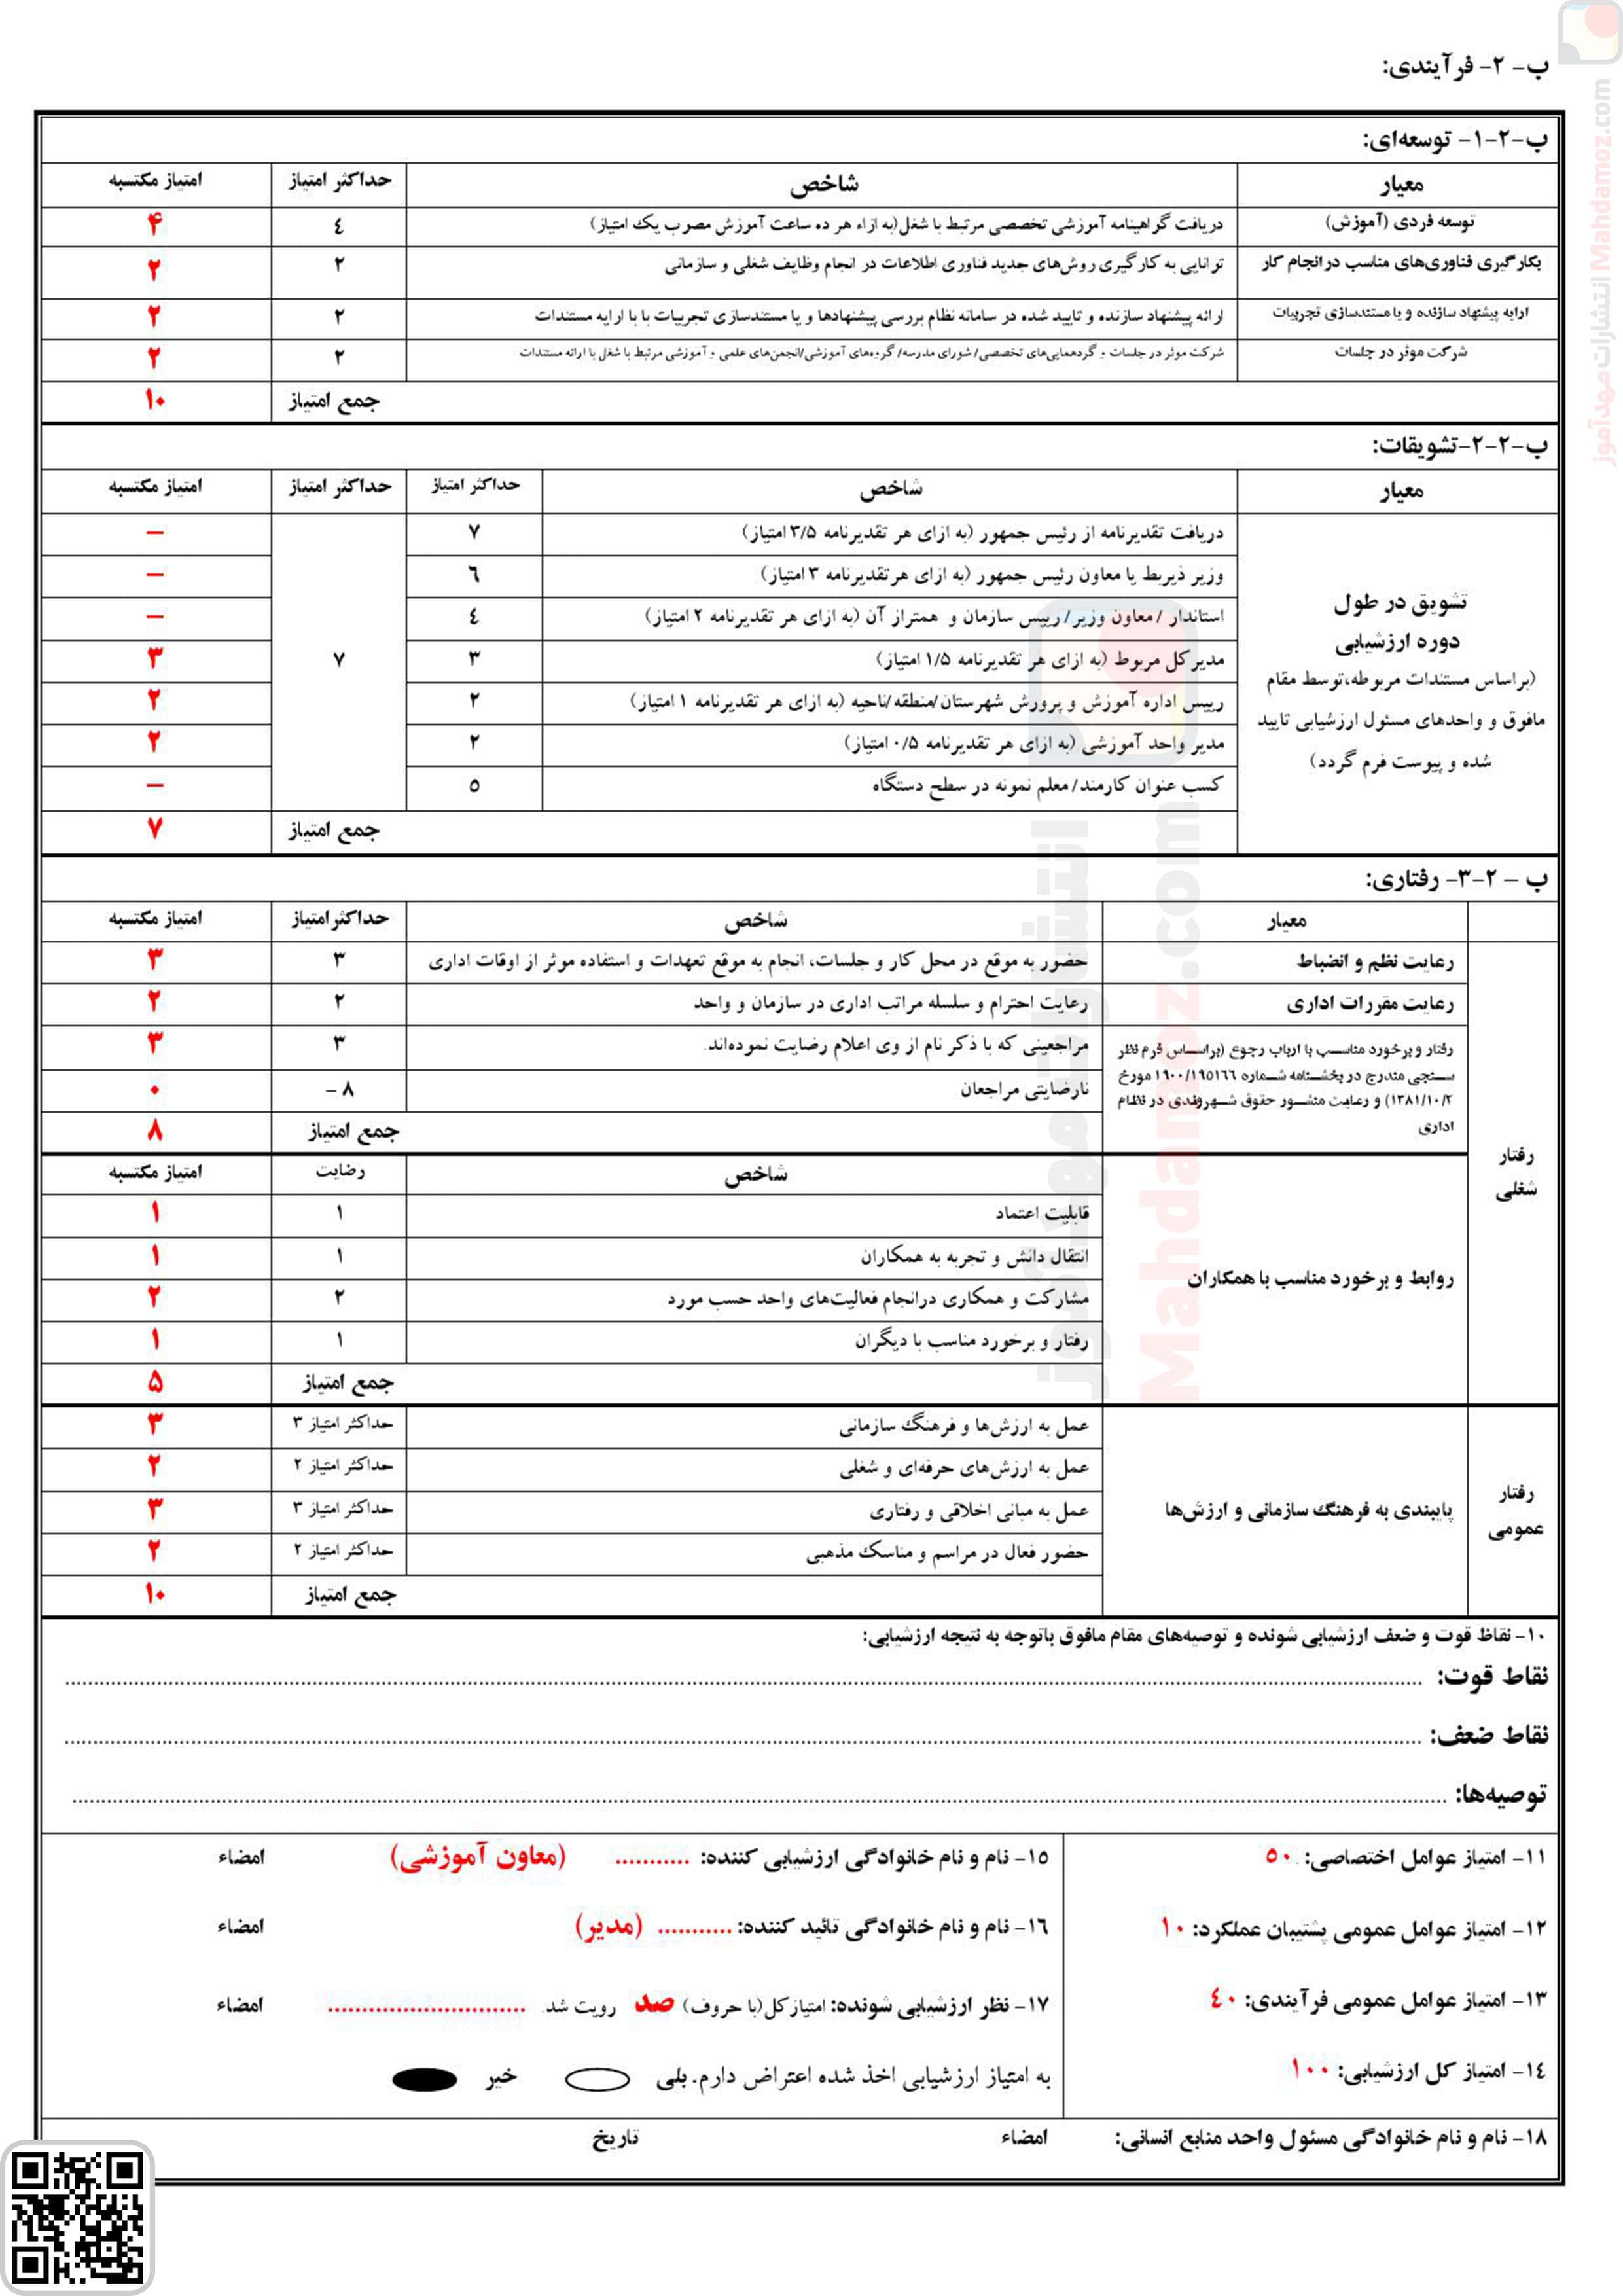 ب- ۲- فرآیندی:
ب-۲-۱- توسعه‌ای:
معیار شاخص حداکثر امتیاز امتیاز مکتسبه
توسعه فردی (آموزش) دریافت گراهینامه آموزشی تخصصی مرتبط با شغل(به ازاء هر ده ساعت آموزش مصوب یک امتیاز) ٤ ۴
بکارگیری فناوری‌های مناسب درانجام کار توانایی به کارگیری روش‌های جدید فناوری اطلاعات در انجام وظایف شغلی و سازمانی ۲ ۲
ارایه پیشنهاد سازنده و یا مستندسازی تجربیات ارائه پیشنهاد سازنده و تایید شده در سامانه نظام بررسی پیشنهادها و یا مستندسازی تجربیات با با ارایه مستندات ۲ ۲
شرکت موثر در جلسات شرکت موثر در جلسات و گردهمایی‌های تخصصی/ شورای مدرسه/ گروه‌های آموزشی/انجمن‌های علمی و آموزشی مرتبط با شغل با ارائه مستندات ۲ ۲
جمع امتیاز ۱۰
ب-۲-۲-تشویقات:
معیار شاخص حداکثر امتیاز حداکثر امتیاز امتیاز مکتسبه
تشویق در طول
دوره ارزشیابی
(براساس مستندات مربوطه،توسط مقام
مافوق و واحدهای مسئول ارزشیابی تایید
شده و پیوست فرم گردد)
دریافت تقدیرنامه از رئیس جمهور (به ازای هر تقدیرنامه ۳/۵ امتیاز) ۷ –
وزیر ذیربط یا معاون رئیس جمهور (به ازای هرتقدیرنامه ۳ امتیاز) ٦ –
استاندار /معاون وزیر/رییس سازمان و همتراز آن (به ازای هر تقدیرنامه ۲ امتیاز) ٤ –
مدیرکل مربوط (به ازای هر تقدیرنامه ۱/۵ امتیاز) ۳ ۷ ۳
رییس اداره آموزش و پرورش شهرستان/منطقه/ناحیه (به ازای هر تقدیرنامه ۱ امتیاز) ۲ ۲
مدیر واحد آموزشی (به ازای هر تقدیرنامه ۰/۵ امتیاز) ۲ ۲
کسب عنوان کارمند/معلم نمونه در سطح دستگاه ۵ –
جمع امتیاز ۷
ب – ۲-۳- رفتاری:
معیار شاخص حداکثرامتیاز امتیاز مکتسبه
رفتار
شغلی
رعایت نظم و انضباط حضور به موقع در محل کار و جلسات، انجام به موقع تعهدات و استفاده موثر از اوقات اداری ۳ ۳
رعایت مقررات اداری رعایت احترام و سلسله مراتب اداری در سازمان و واحد ۲ ۲
رفتار و برخورد مناسب با ارباب رجوع (براساس فرم نظر
سنجی مندرج در بخشنامه شماره ۱۹۰۰/۱۹۵۱٦٦ مورخ
۱۳۸۱/۱۰/۲) و رعایت منشور حقوق شهروندی در نظام
اداری
مراجعینی که با ذکر نام از وی اعلام رضایت نموده‌اند. ۳ ۳
نارضایتی مراجعان ۸- ۰
جمع امتیاز ۸
شاخص رضایت امتیاز مکتسبه
روابط و برخورد مناسب با همکاران
قابلیت اعتماد ۱ ۱
انتقال دانش و تجربه به همکاران ۱ ۱
مشارکت و همکاری درانجام فعالیت‌های واحد حسب مورد ۲ ۲
رفتار و برخورد مناسب با دیگران ۱ ۱
جمع امتیاز ۵
رفتار
عمومی
پایبندی به فرهنگ سازمانی و ارزش‌ها
عمل به ارزش‌ها و فرهنگ سازمانی حداکثر امتیاز ۳ ۳
عمل به ارزش‌های حرفه‌ای و شغلی حداکثر امتیاز ۲ ۲
عمل به مبانی اخلاقی و رفتاری حداکثر امتیاز ۳ ۳
حضور فعال در مراسم و مناسک مذهبی حداکثر امتیاز ۲ ۲
جمع امتیاز ۱۰
۱۰- نقاط قوت و ضعف ارزشیابی شونده و توصیه‌های مقام مافوق باتوجه به نتیجه ارزشیابی:
نقاط قوت: ........................
نقاط ضعف: ........................
توصیه‌ها: ........................
۱۱- امتیاز عوامل اختصاصی: ۵۰
۱۲- امتیاز عوامل عمومی پشتیبان عملکرد: ۱۰
۱۳- امتیاز عوامل عمومی فرآیندی: ٤۰
۱٤- امتیاز کل ارزشیابی: ۱۰۰
۱۵- نام و نام خانوادگی ارزشیابی کننده: ........... (معاون آموزشی) امضاء
۱٦- نام و نام خانوادگی تائید کننده: ........... (مدیر) امضاء
۱۷- نظر ارزشیابی شونده: امتیازکل(با حروف) صد رویت شد. ............................ امضاء
به امتیاز ارزشیابی اخذ شده اعتراض دارم. بلی خیر
۱۸- نام و نام خانوادگی مسئول واحد منابع انسانی: امضاء تاریخ
انتشارات مهدآموز Mahdamoz.com
انتشارات مهدآموز
Mahdamoz.com